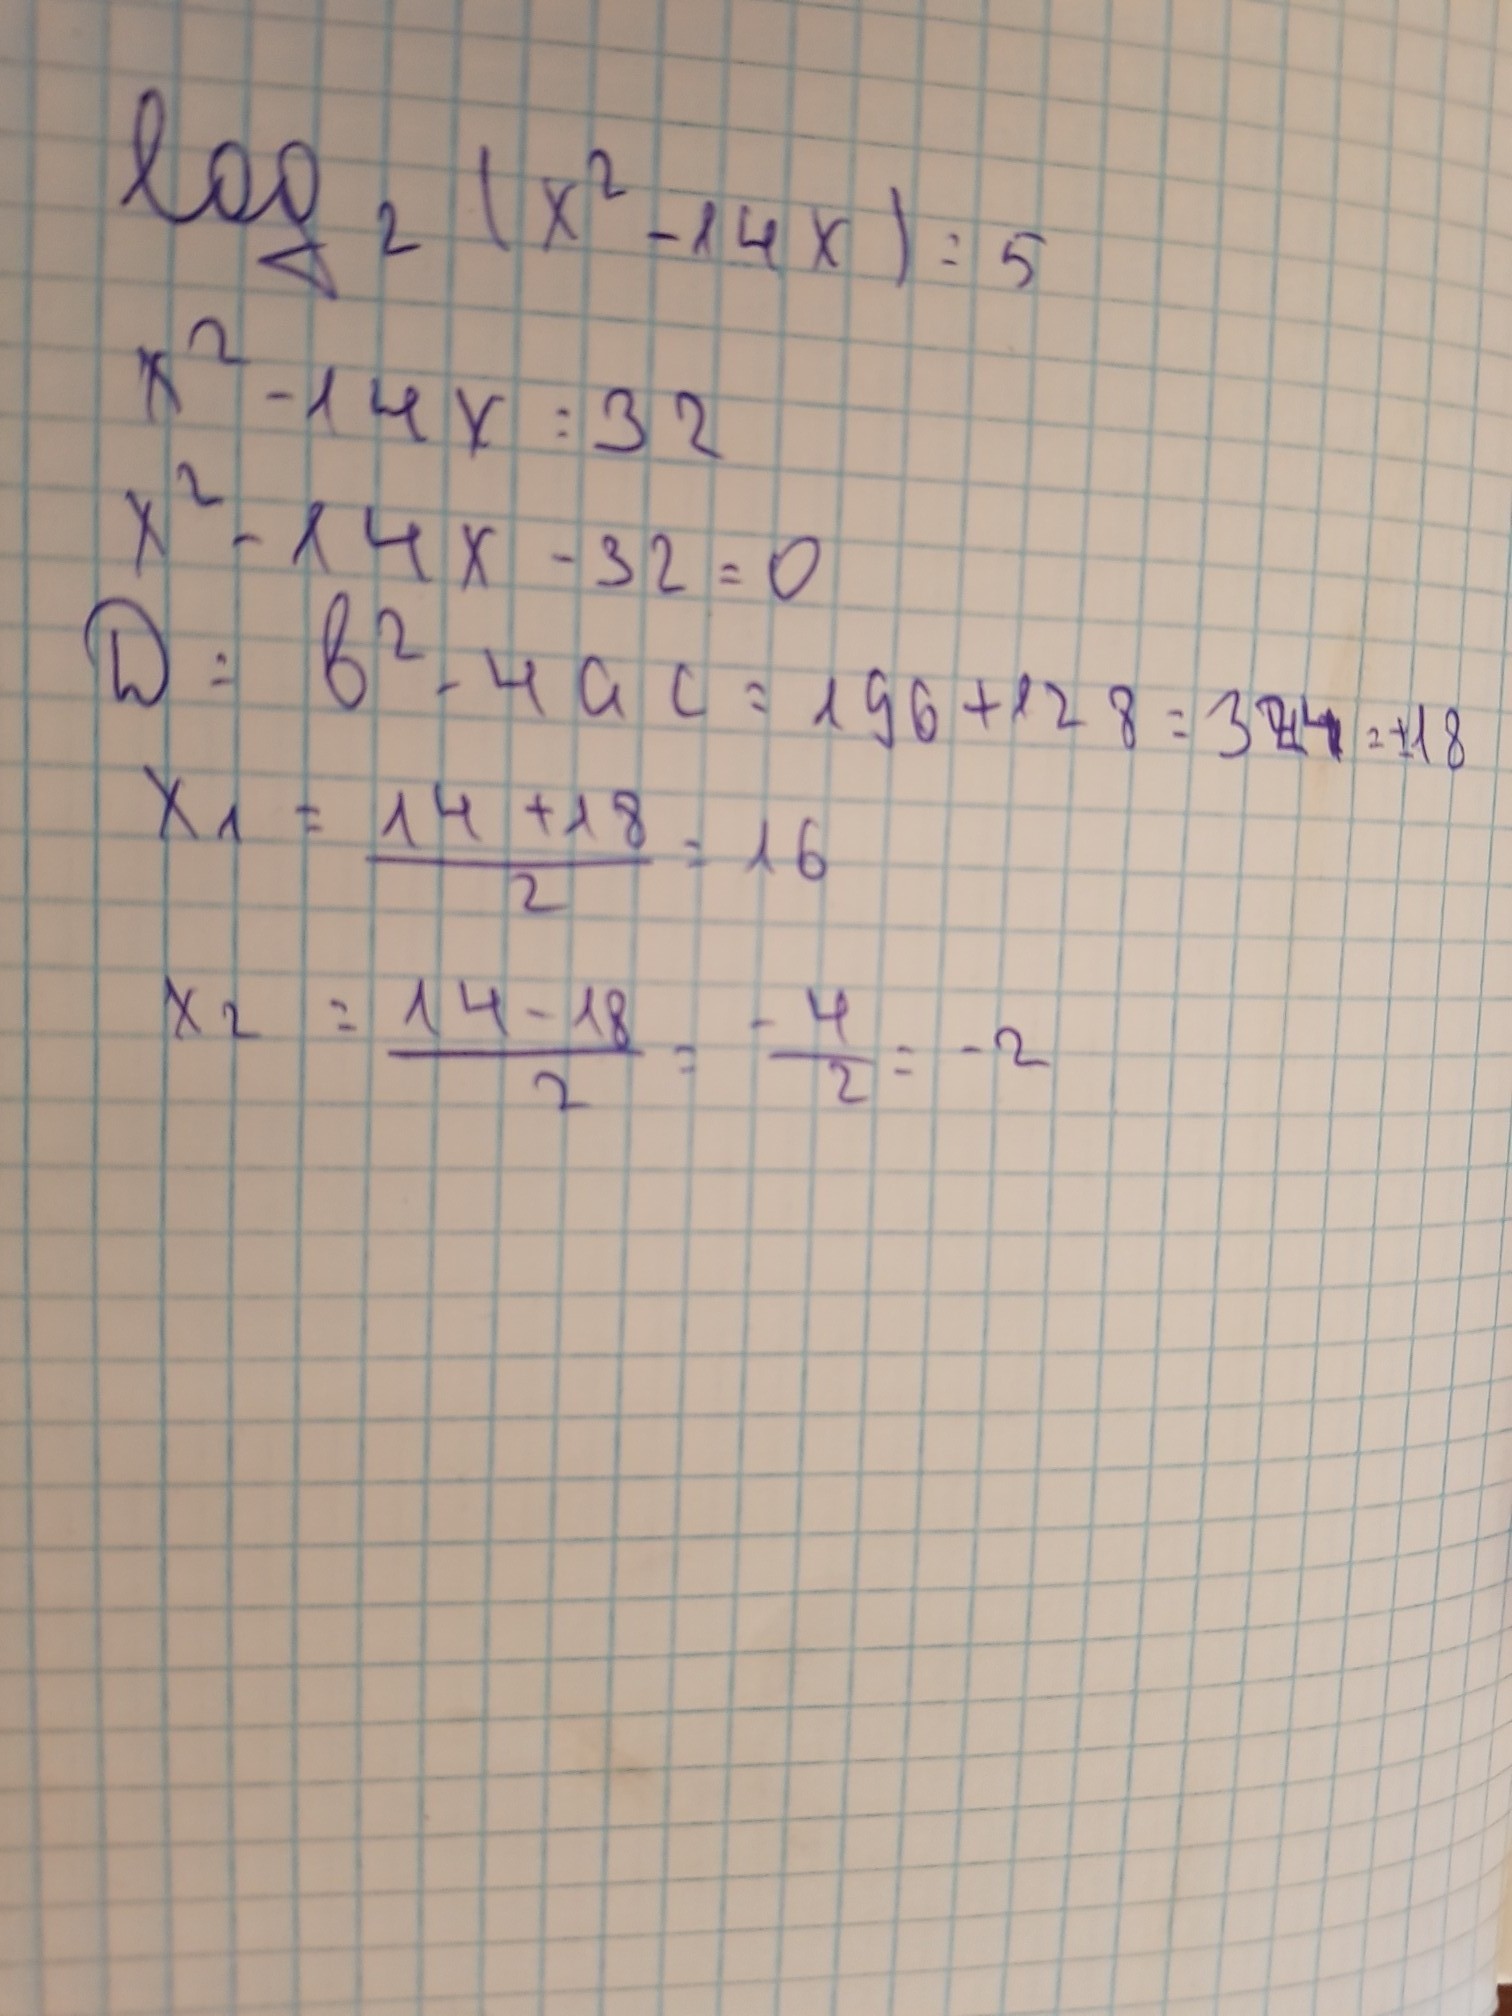 log₂ (x² - 14x) = 5
x² - 14x = 32
x² - 14x - 32 = 0
D = b² - 4ac = 196 + 128 = 324 = ±18
x₁ = (14 + 18)/2 = 16
x₂ = (14 - 18)/2 = -4/2 = -2